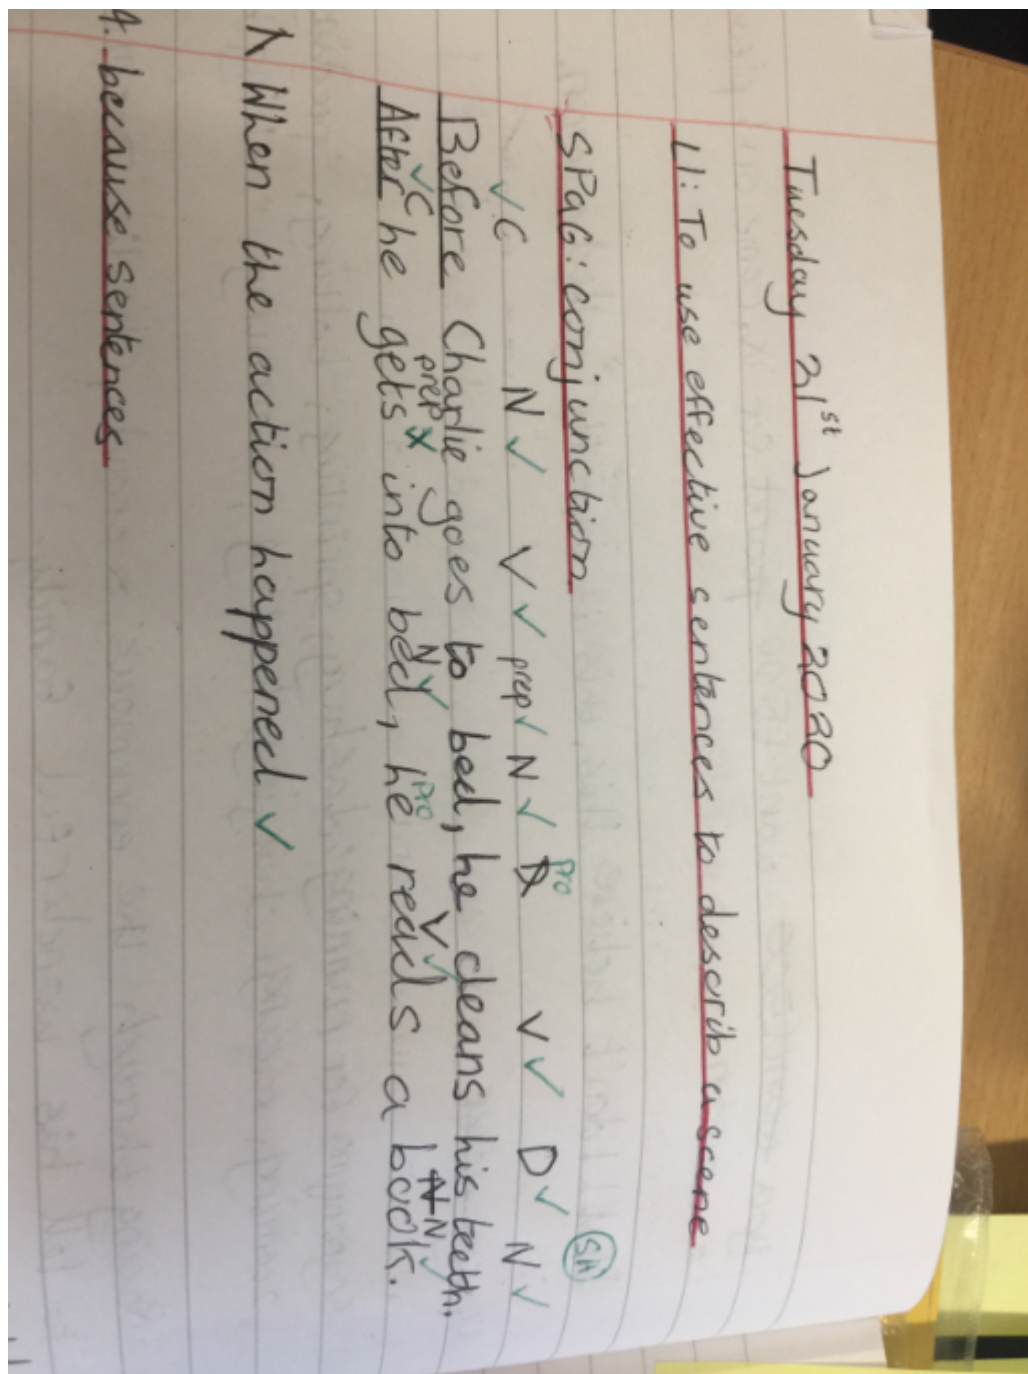 Tuesday 21st January 2020
LI: To use effective sentences to describ a scene
SPaG: conjunction
✓C N ✓ V ✓ prep ✓ N ✓ Pro V ✓ D ✓ N ✓ SH
Before Charlie goes to bed, he cleans his teeth.
✓C prep x N ✓ Pro V ✓ N ✓
After he gets into bed, he reads a book.
When the action happened ✓
4. because sentences